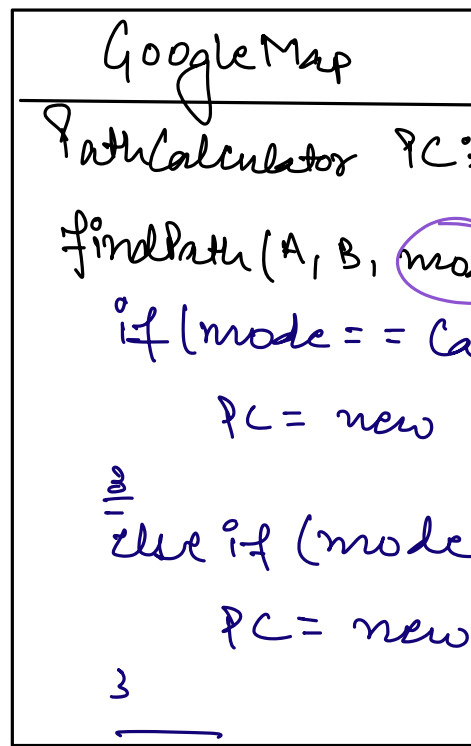 GoogleMap
PathCalculator PC;
findPath(A, B, mo
if (mode == Ca
PC = new
}
else if (mode
PC = new
}